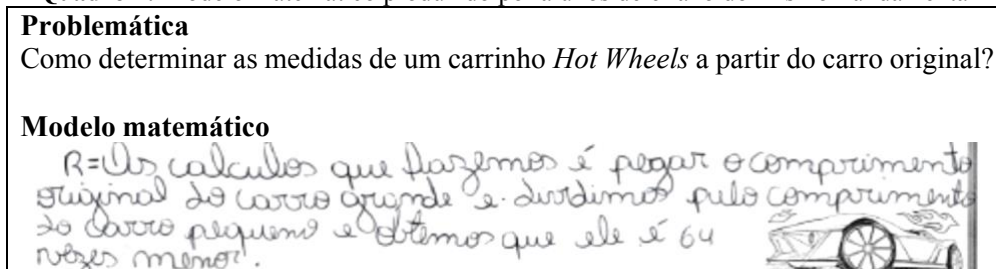 Problemática
Como determinar as medidas de um carrinho Hot Wheels a partir do carro original?
Modelo matemático
R=Os calculos que fazemos é pegar o comprimento
original do carro grande e dividimos pelo comprimento
do carro pequeno e obtemos que ele é 64
vezes menor.